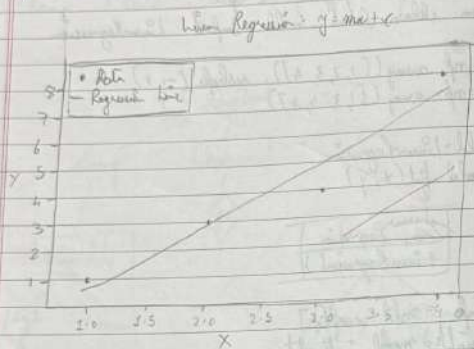 Linear Regression: y = mx + c
• Data
— Regression Line
8
7
6
5
Y
4
3
2
1
1.0 1.5 2.0 2.5 3.0 3.5 4
X